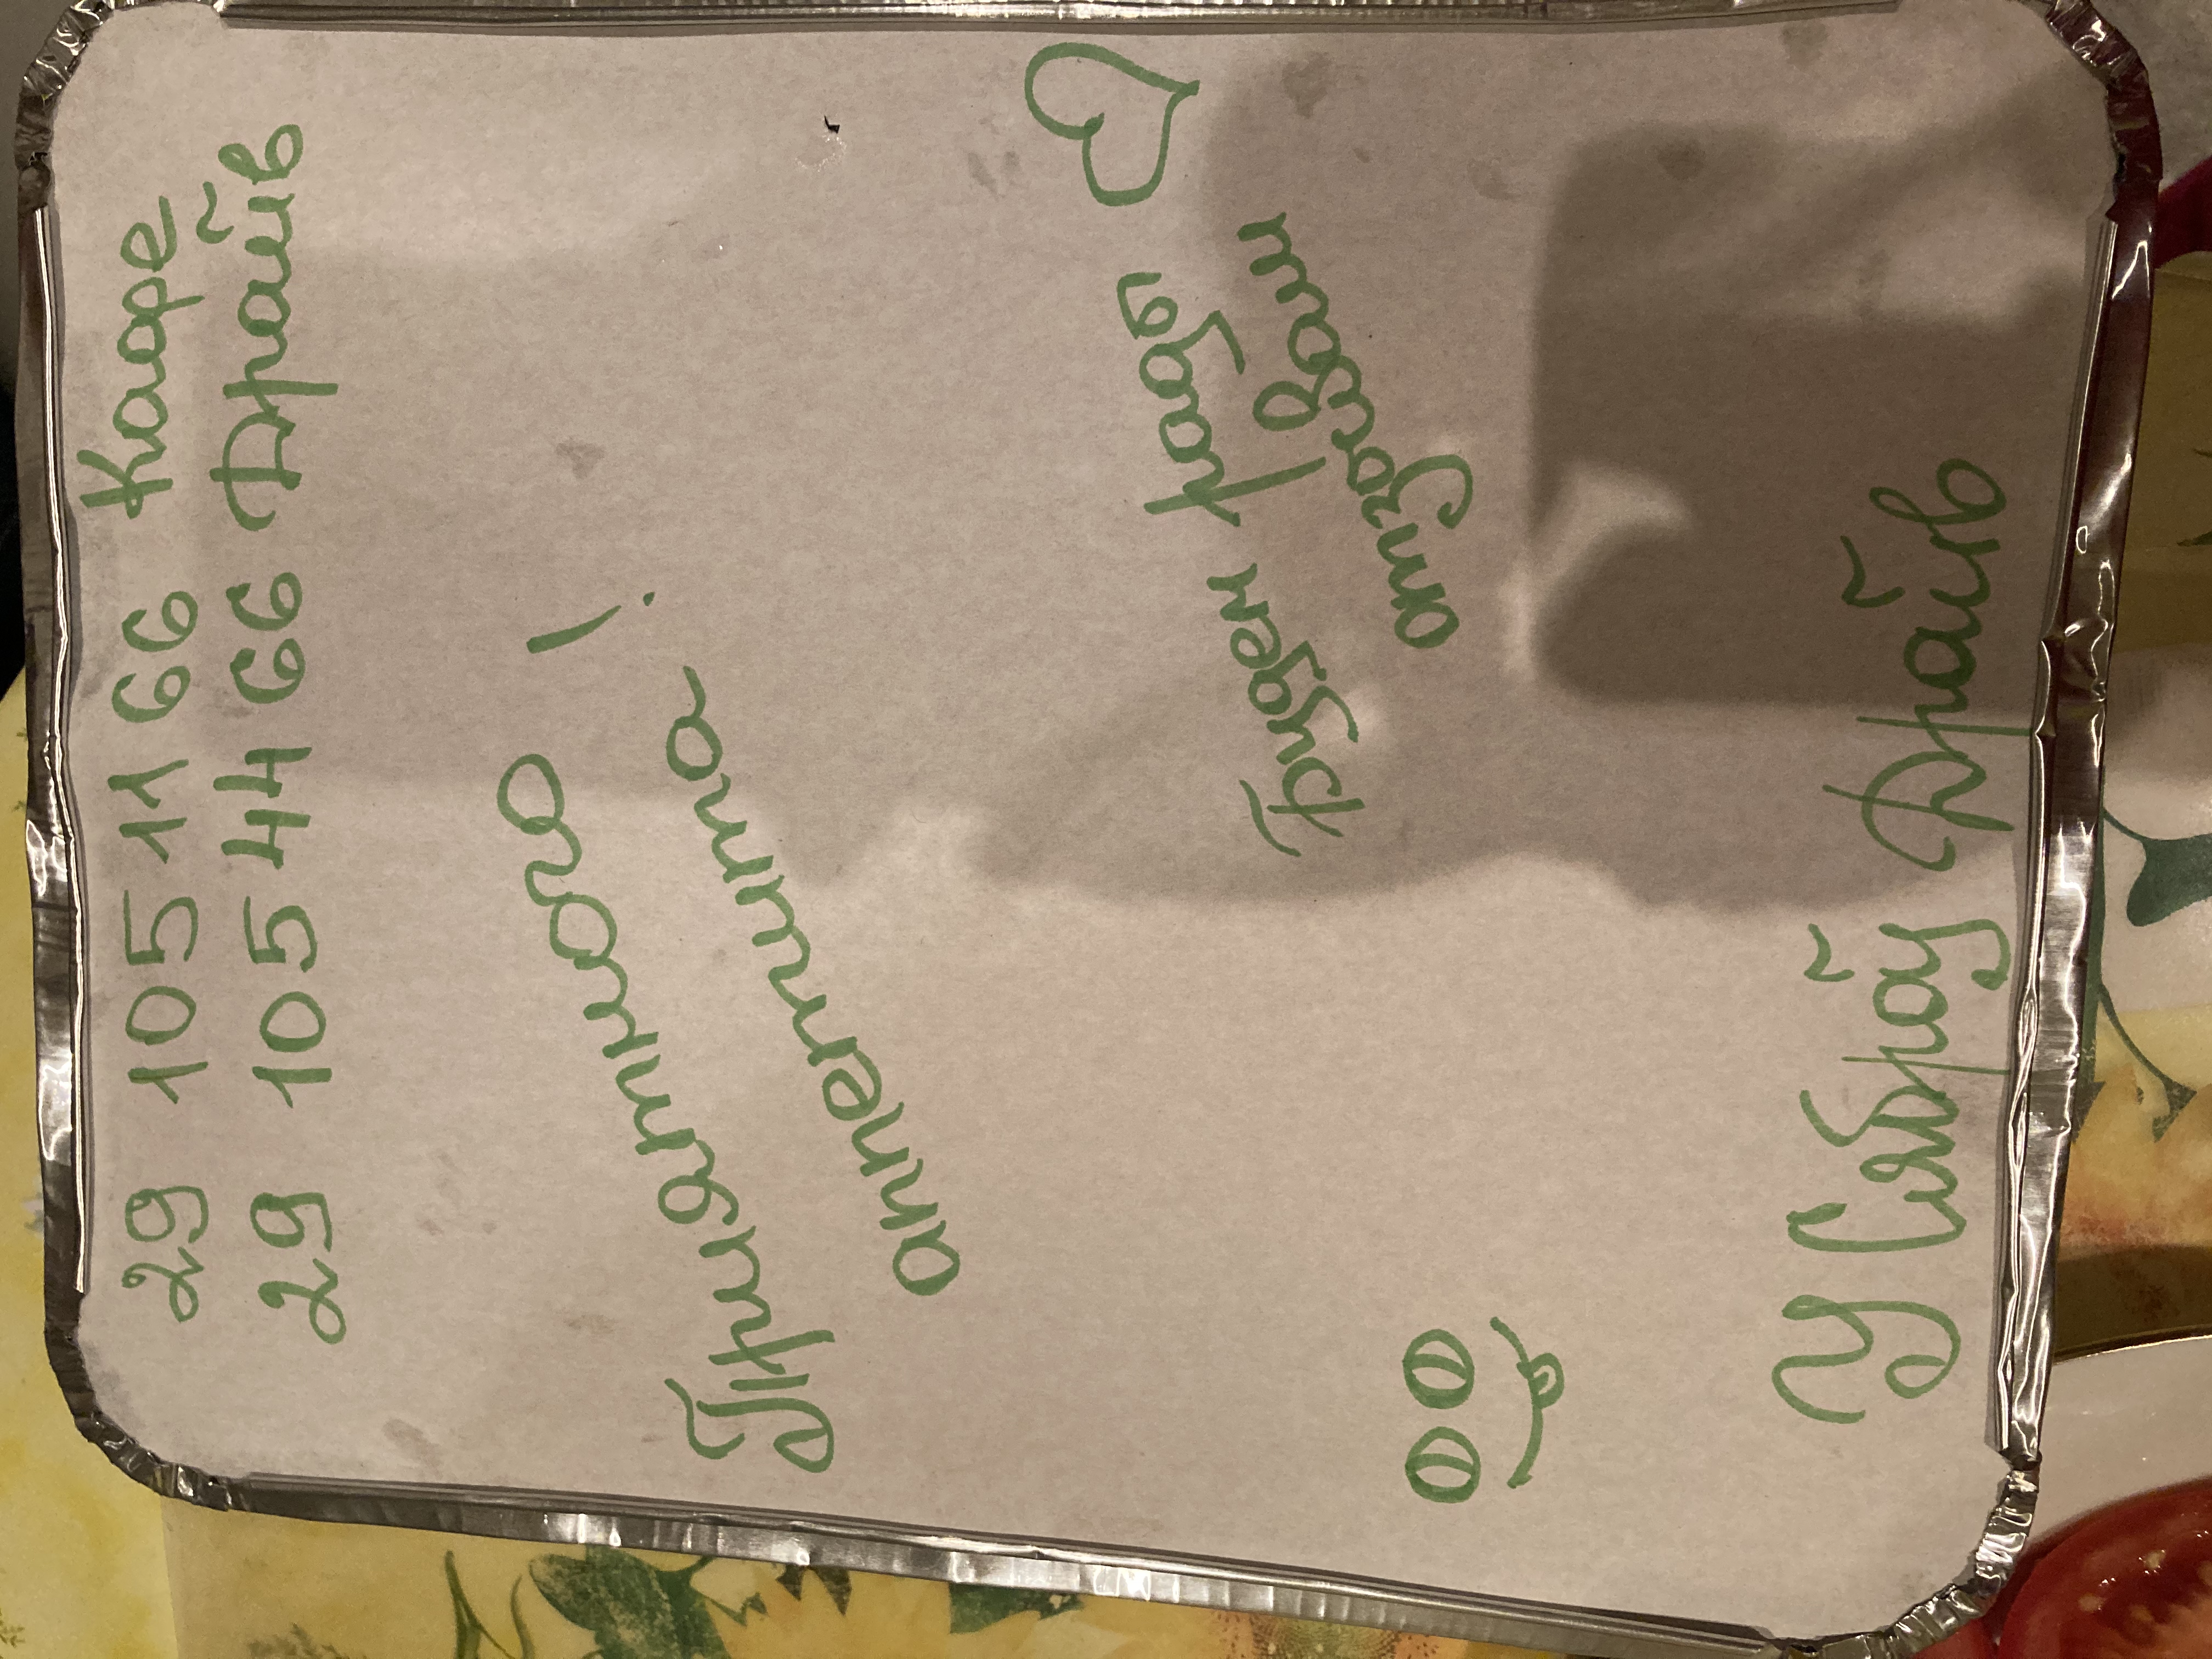 29 105 11 66 Каре
29 105 44 66 Драйв
Приятного !
аппетита
Будем рады
отзывам
У Сябрай Драйв